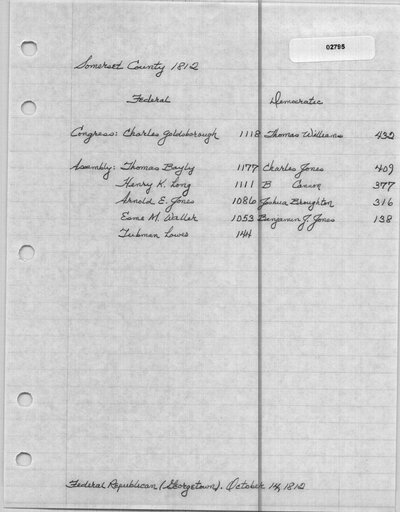 02795
Somerset County 1812
Federal Democratic
Congress: Charles Goldsborough 1118 Thomas Williams 432
Assembly: Thomas Bayly 1177 Charles Jones 409
Henry K. Long 1111 B Cannon 377
Arnold E. Jones 1086 Joshua Broughton 316
Esme M. Waller 1053 Benjamin J. Jones 138
Tubman Lowes 144
Federal Republican (Georgetown). October 14, 1812